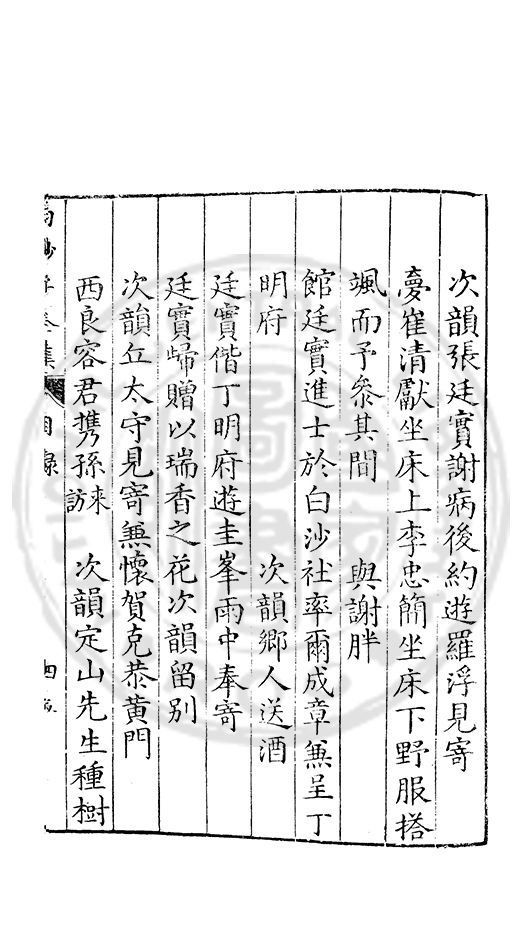 次韻張廷實謝病後約遊羅浮見寄
夣崔清獻坐床上李忠簡坐床下野服搭
颯而予叅其間　與謝胖
館廷實進士於白沙社率爾成章兼呈丁
明府　次韻鄉人送酒
廷實偕丁明府遊圭峯雨中奉寄
廷實歸贈以瑞香之花次韻留别
次韻丘太守見寄兼懷賀克恭黄門
西良容君携孫來訪　次韻定山先生種樹
目錄